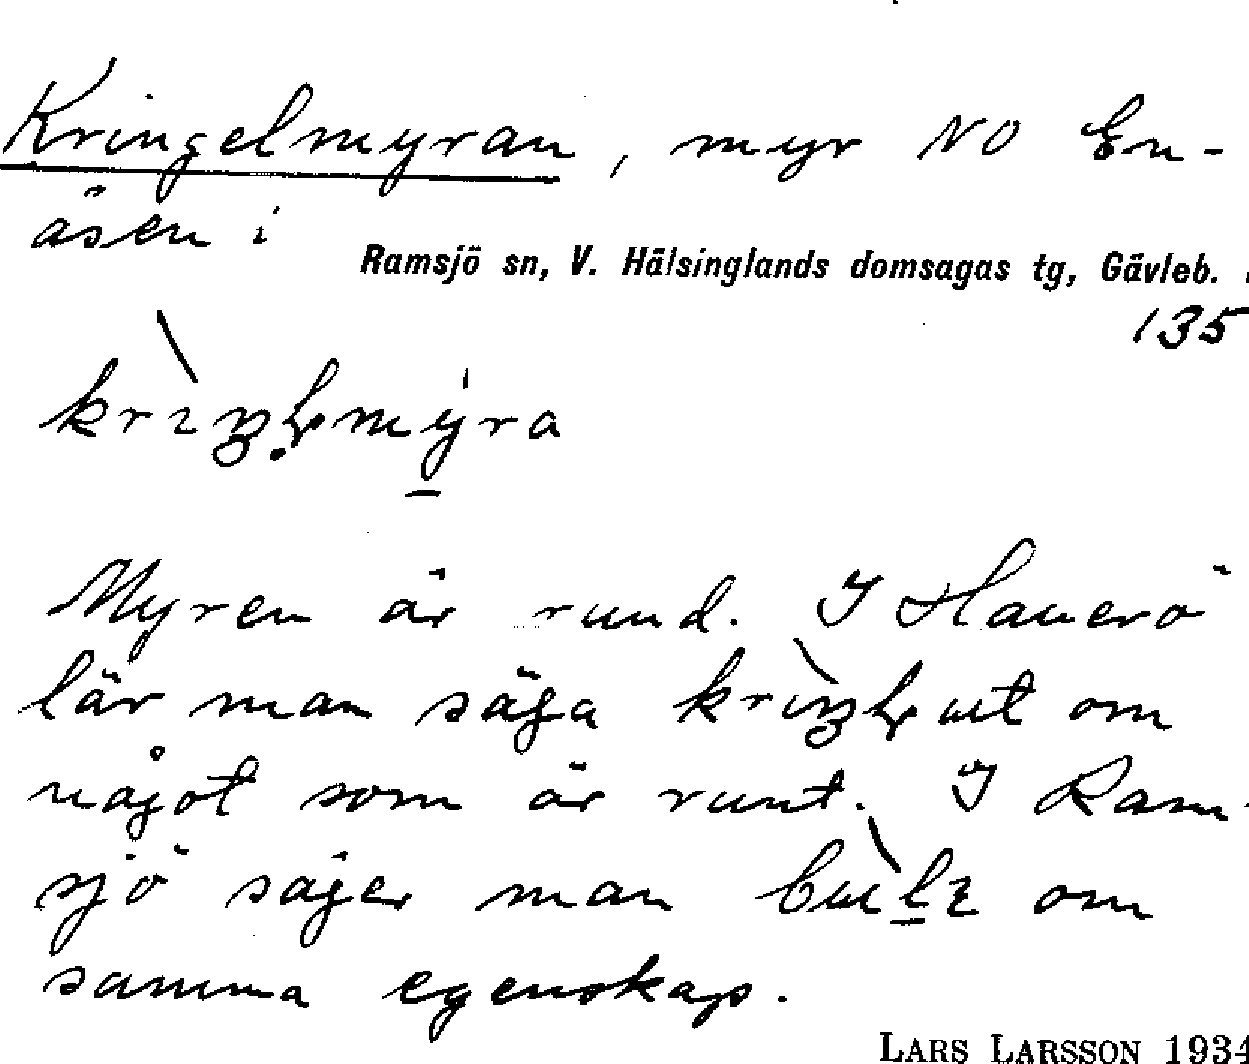 Kringelmyran, myr NO En-
åsen i
Ramsjö sn, V. Hälsinglands domsagas tg, Gävleb.
135
Myren är rund. I Haverö
lär man säga om
något som är runt. I Ram-
sjö säger man om
samma egenskap.
LARS LARSSON 1934